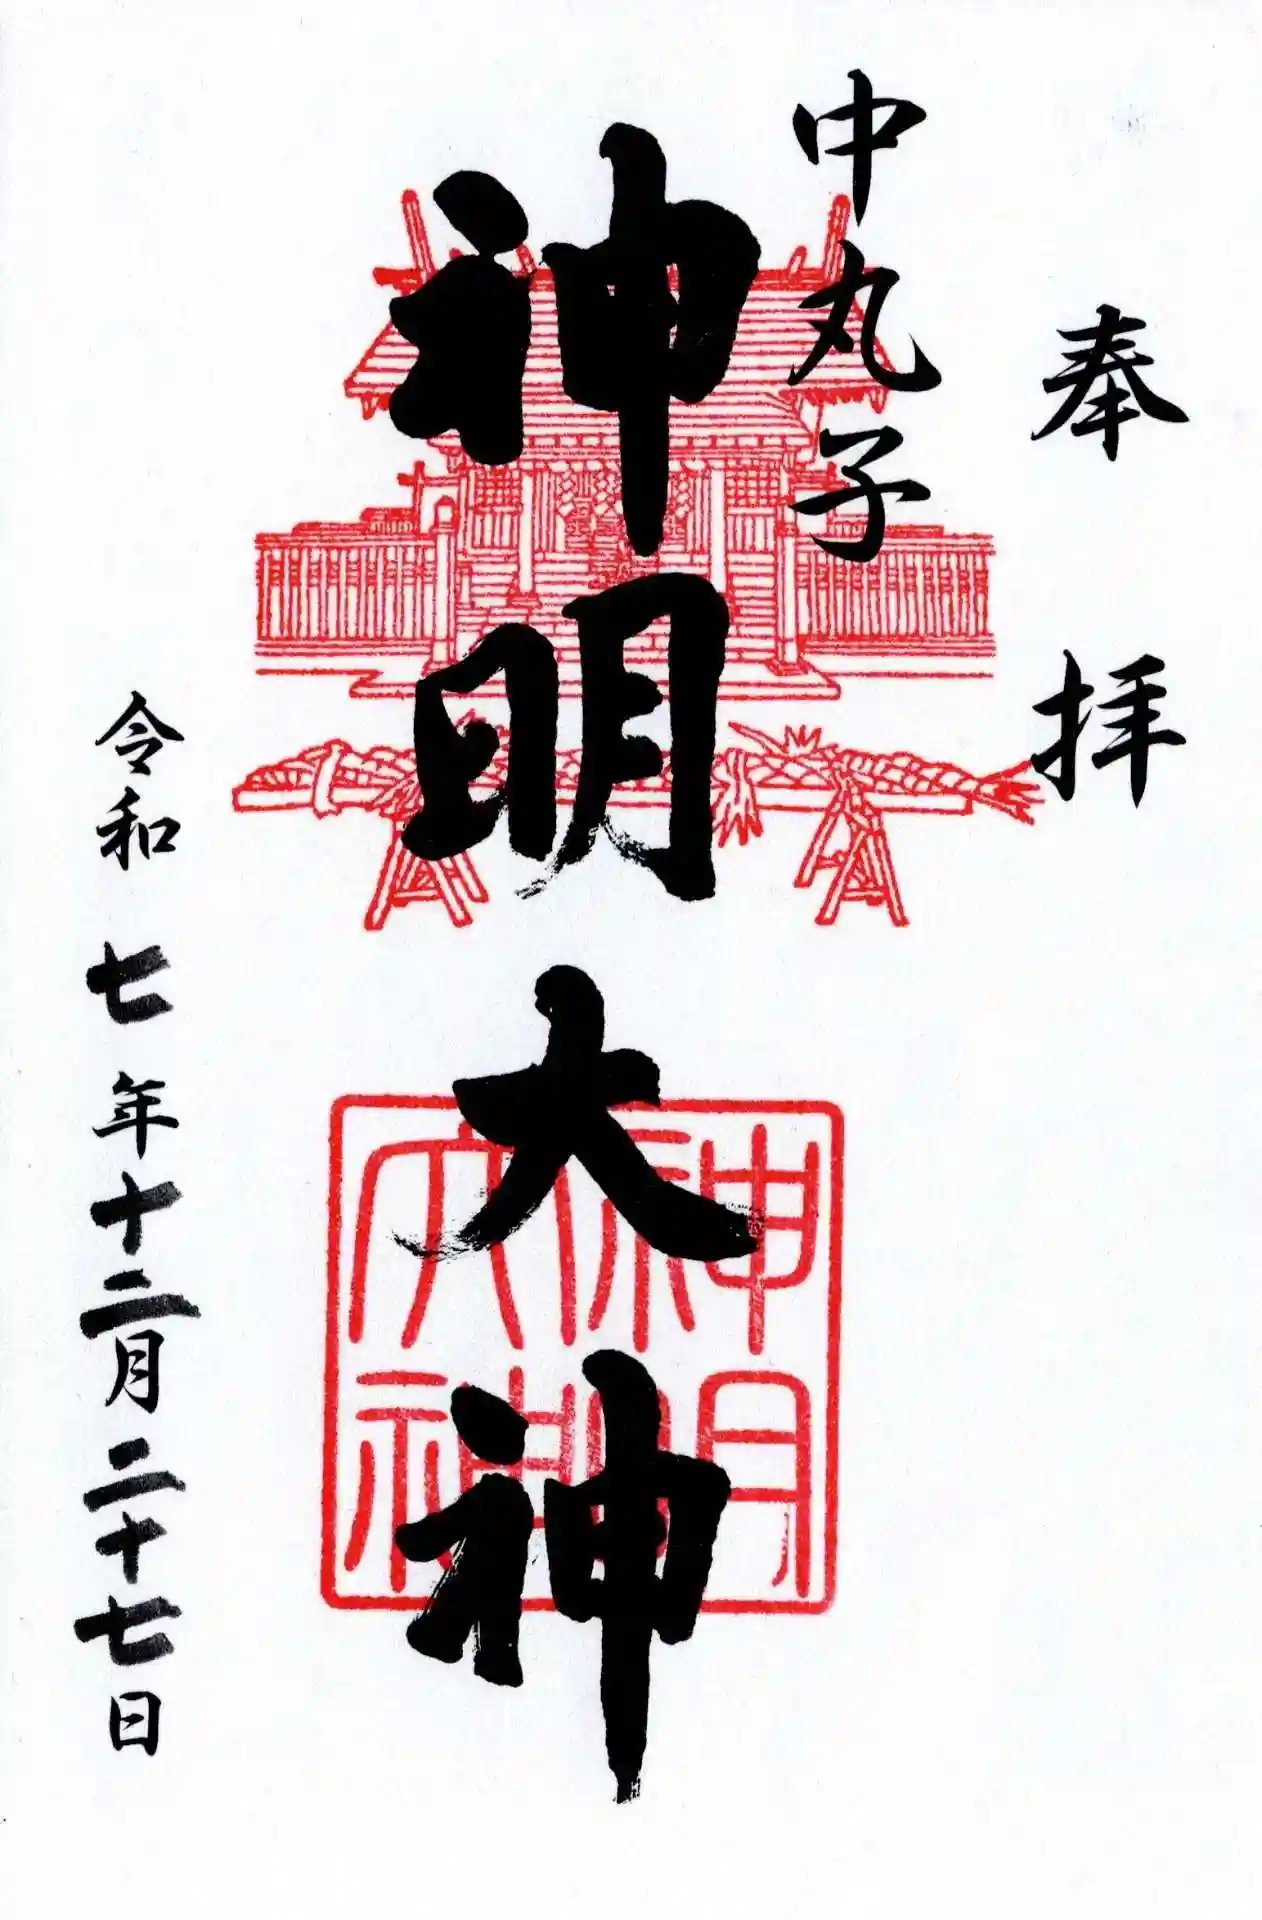 奉拝
中丸子
神明大神
神明
大神
令和七年十二月二十七日